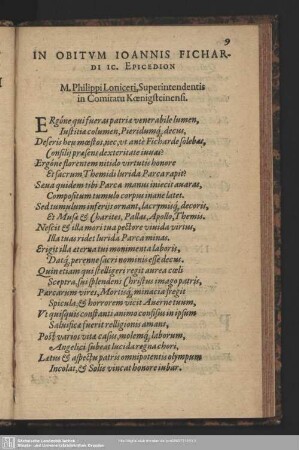 9
IN OBITVM IOANNIS FICHAR-
DI IC. EPICEDION
M. Philippi Loniceri, Superintendentis
in Comitatu Kœnigsteinensi.
ERgóne qui fueras patriæ venerabile lumen,
Iustitiæ columen, Pieridumq́, decus,
Deseris heu mœstos, nec, vt antè Ficharde solebas,
Consilij præsens dexteritate iuuas?
Ergóne florentem nitido virtutis honore
Et sacrum Themidi lurida Parca rapit?
Sæua quidem tibi Parca manus iniecit auaras,
Compositum tumulo corpus inane latet.
Sed tumulum inferijs ornant, lacrymisq́, decoris,
Et Musæ & Charites, Pallas, Apollo, Themis.
Nescit & illa mori tua pectore viuida virtus,
Illa tuas ridet lurida Parca minas.
Erigit illa æterna tui monumenta laboris,
Datq́, perenne sacri nominis esse decus.
Quin etiam qui stelligeri regit aurea cœli
Sceptra, sui splendens Christus imago patris,
Parcarum vires, Mortisq́, minacia fregit
Spicula, & horrorem vicit Auerne tuum,
Vt quisquis constanti animo confisus in ipsum
Saluificæ fuerit relligionis amans,
Post varios vitæ casus, molemq́, laborum,
Angelici subeat lucida regna chori,
Lætus & aspectu patris omnipotentis olympum
Incolat, & Solis vincat honore iubar.